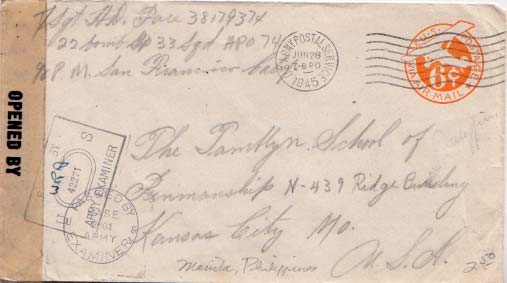 T/Sgt A.D. Pace 38179374
22 bomb Gp 33 Sqd APO 74
c/o P.M. San Francisco Calif
U.S. ARMY POSTAL SERVICE
JUN 28
2-BPO
1945
U.S. POSTAGE
6¢
VIA AIR MAIL
OPENED BY
BY
U S
WRA
42271
ARMY EXAMINER
BY
BASE
ARMY
EXAMINER
The Tamblyn School of
Penmanship N-439 Ridge Building
Kansas City Mo.
U.S.A.
Manila, Philippines
2.50